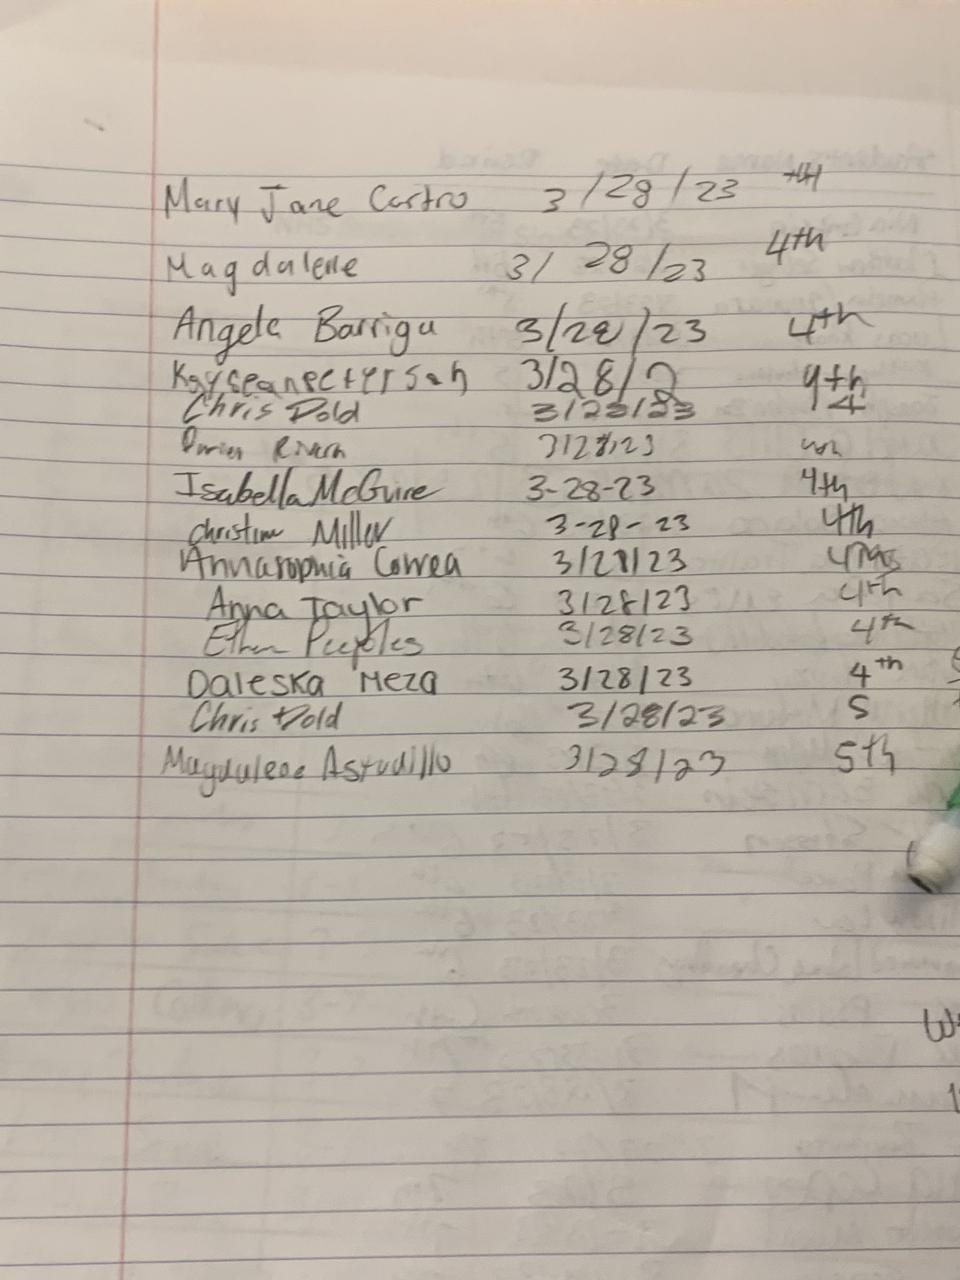 Mary Jane Castro 3/28/23 4th
Magdalene 3/28/23 4th
Angela Barriga 3/28/23 4th
3/28/2 4th
Chris Dold 3/28/23 4
Rivera 3/28/23
Isabella McGuire 3-28-23 4th
Christine Miller 3-28-23 4th
Annasophia Correa 3/28/23
Anna Taylor 3/28/23 4th
Ethan Peeples 3/28/23 4th
Daleska Meza 3/28/23 4th
Chris Dold 3/28/23 5
Magdalene Astudillo 3/28/23 5th